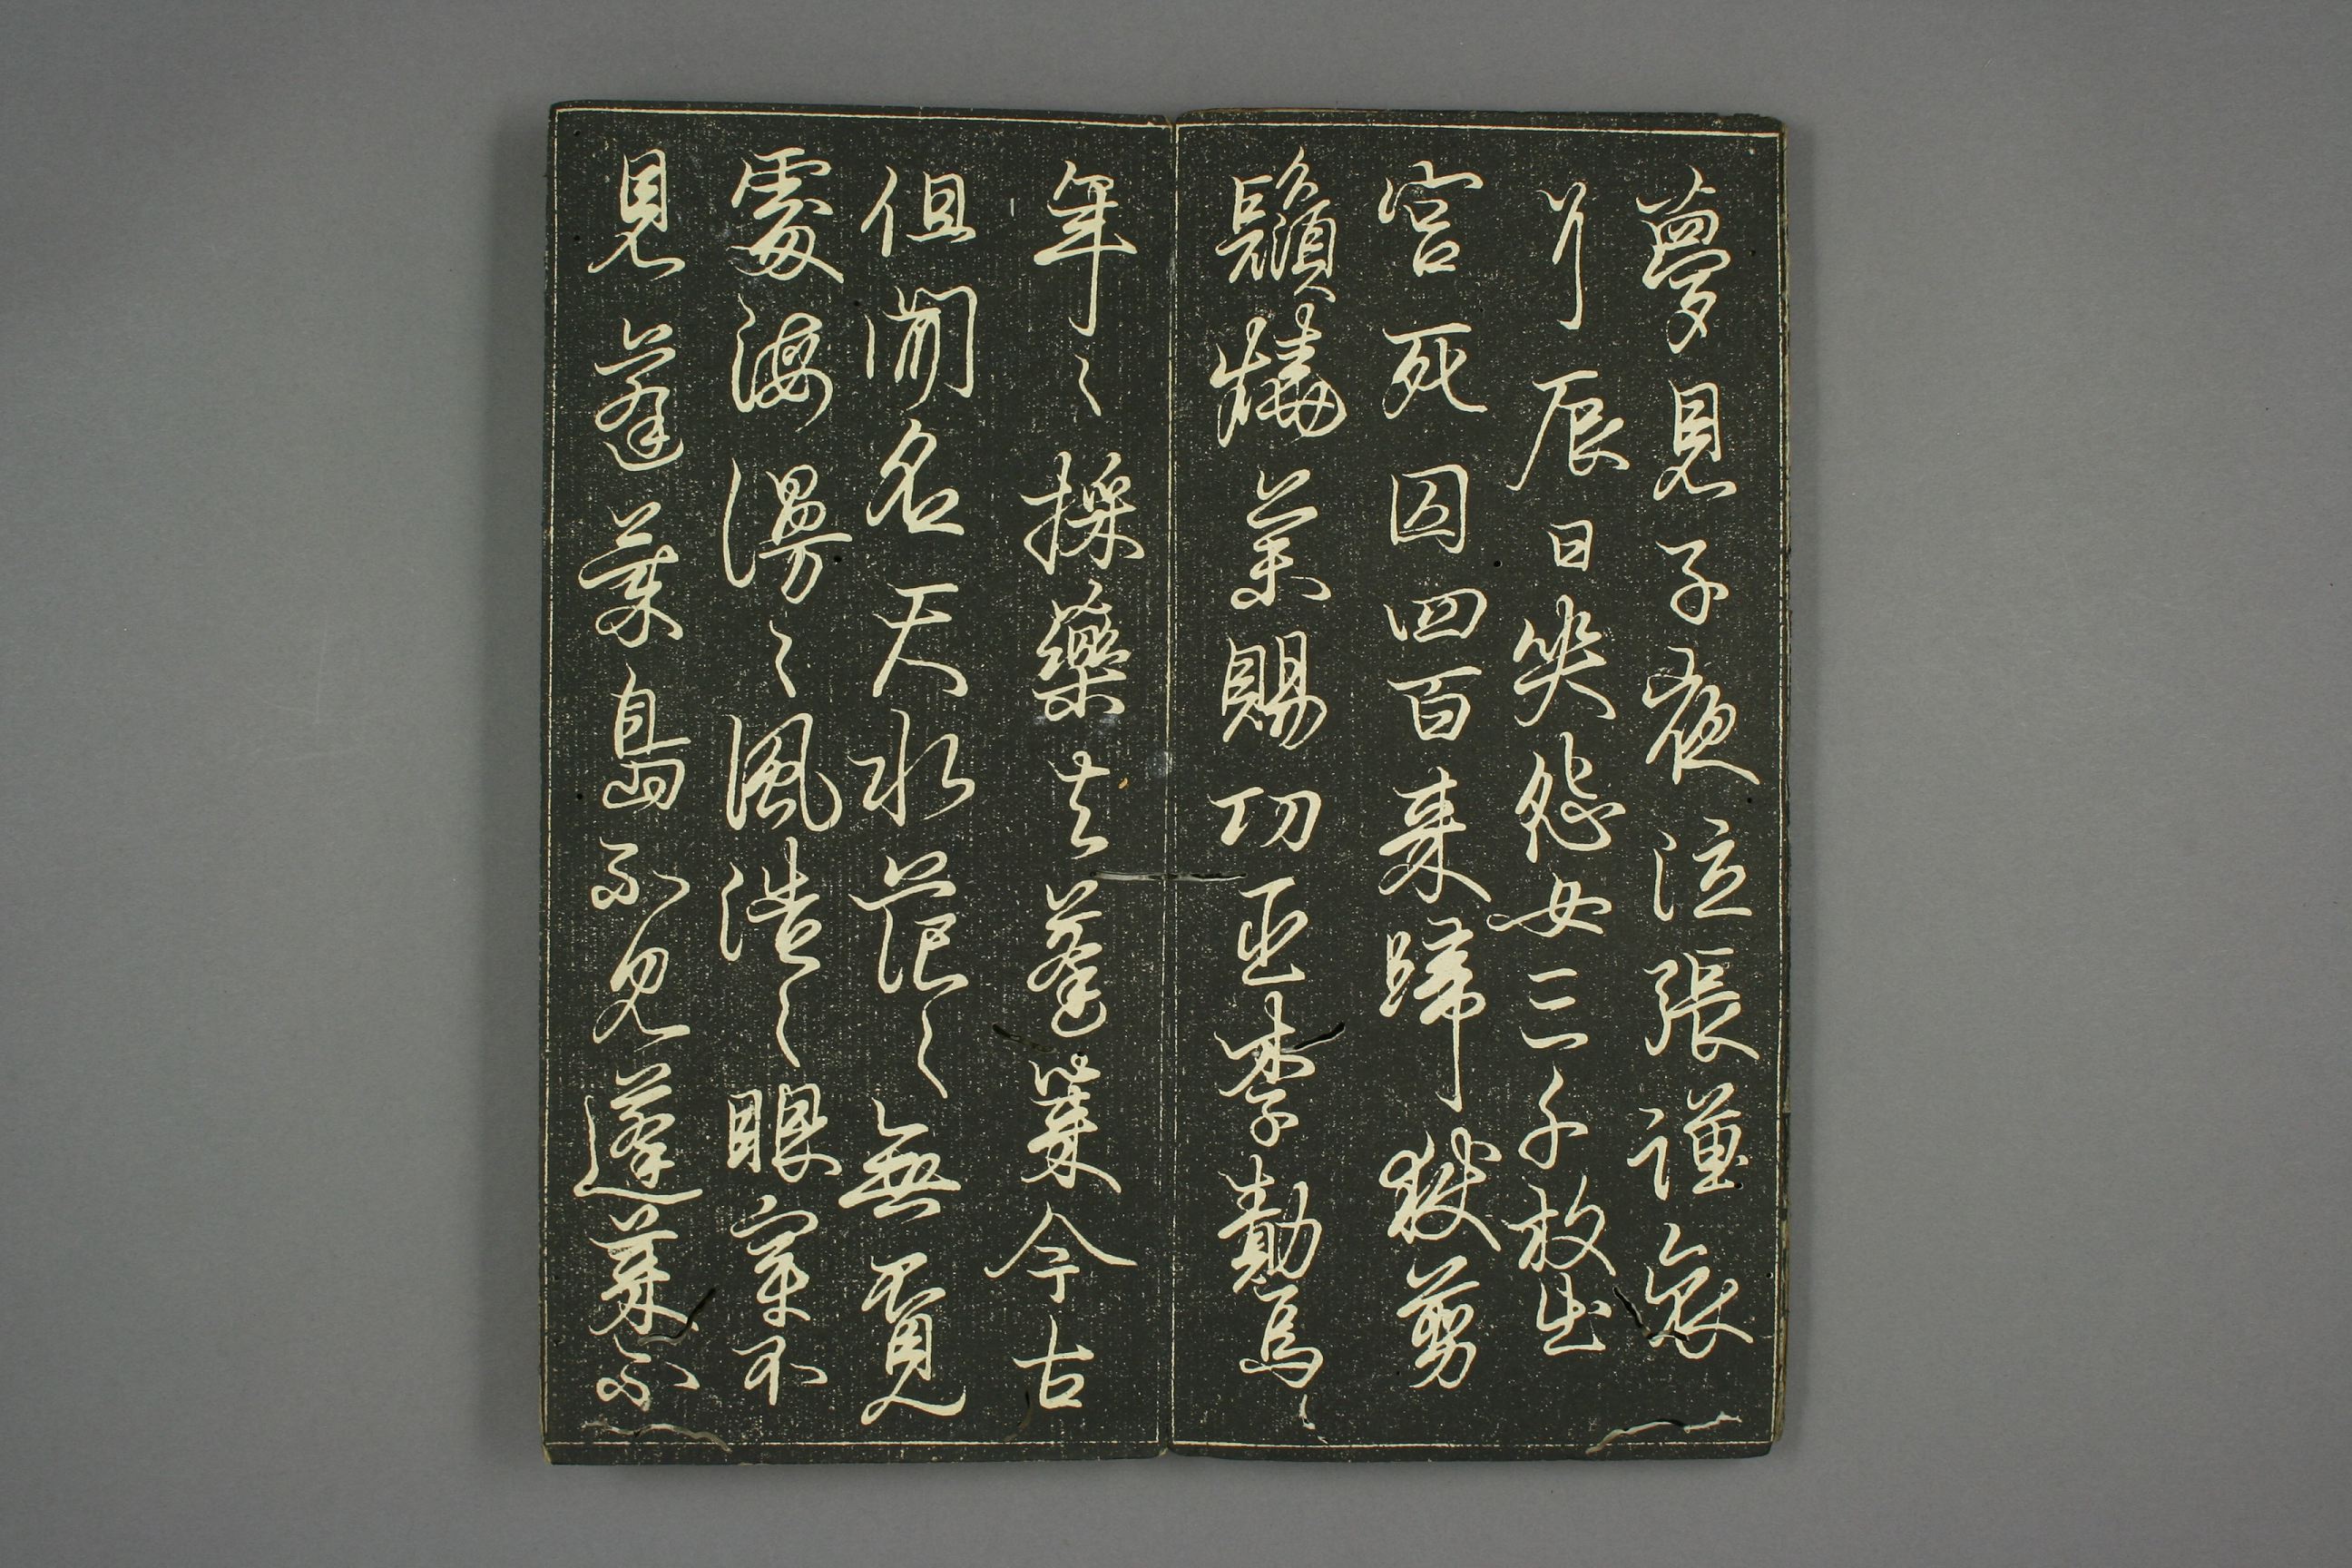 夢見子夜泣張謹哀
聞辰日哭怨女三千放出
宮死囚四百来歸獄剪
鬚燒薬賜功臣李勣嗚
年々採藥去蓬萊今古
但聞名天水茫々無覓
處海漫々風浩々眼穿不
見蓬萊島不見蓬萊不